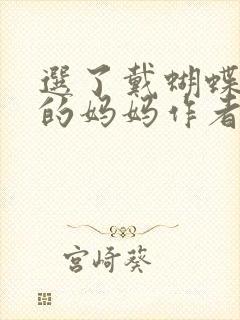 選了戴蝴蝶
的妈妈作者
宫崎葵